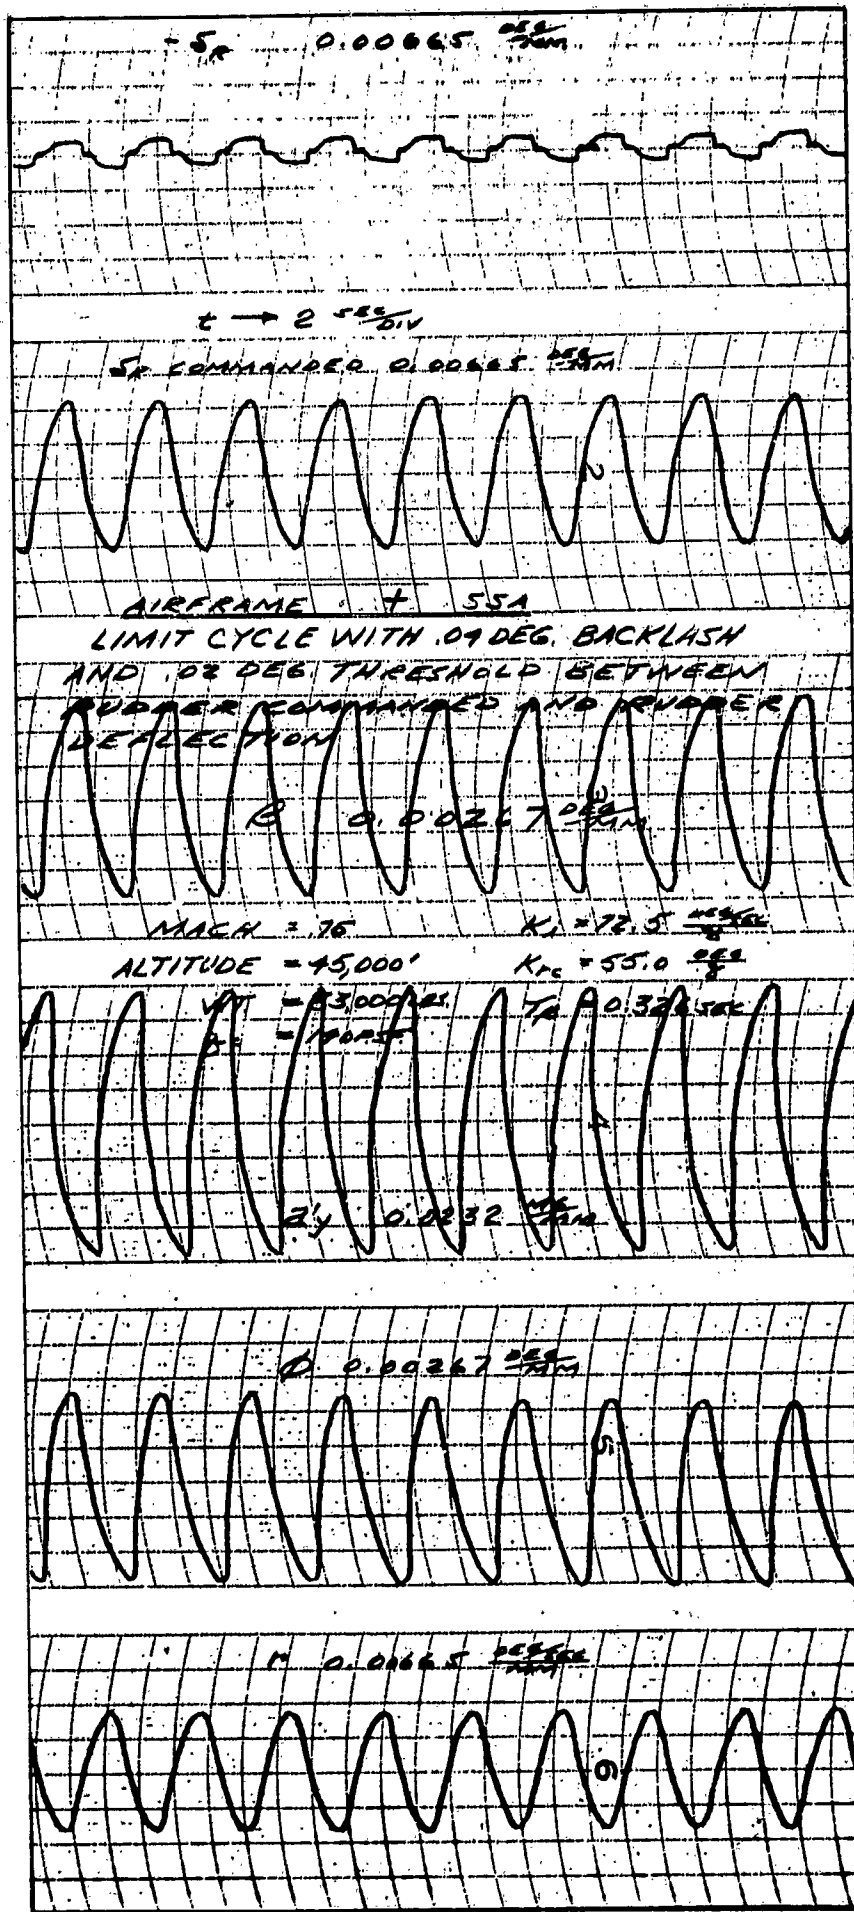 - δR 0.00665 DEG/MM
t → 2 SEC/DIV
δR COMMANDED 0.00665 DEG/MM
2
AIRFRAME + SSA
LIMIT CYCLE WITH .04 DEG. BACKLASH
AND .02 DEG. THRESHOLD BETWEEN
RUDDER COMMANDED AND RUDDER
DEFLECTION
3
β 0.00267 DEG/MM
MACH = .76
ALTITUDE = 45,000'
= 140 PSF
= 72.5
= 55.0
= 0.326 SEC
4
a'y 0.0232
φ 0.00267 DEG/MM
5
r 0.00665 DEG/SEC/MM
6